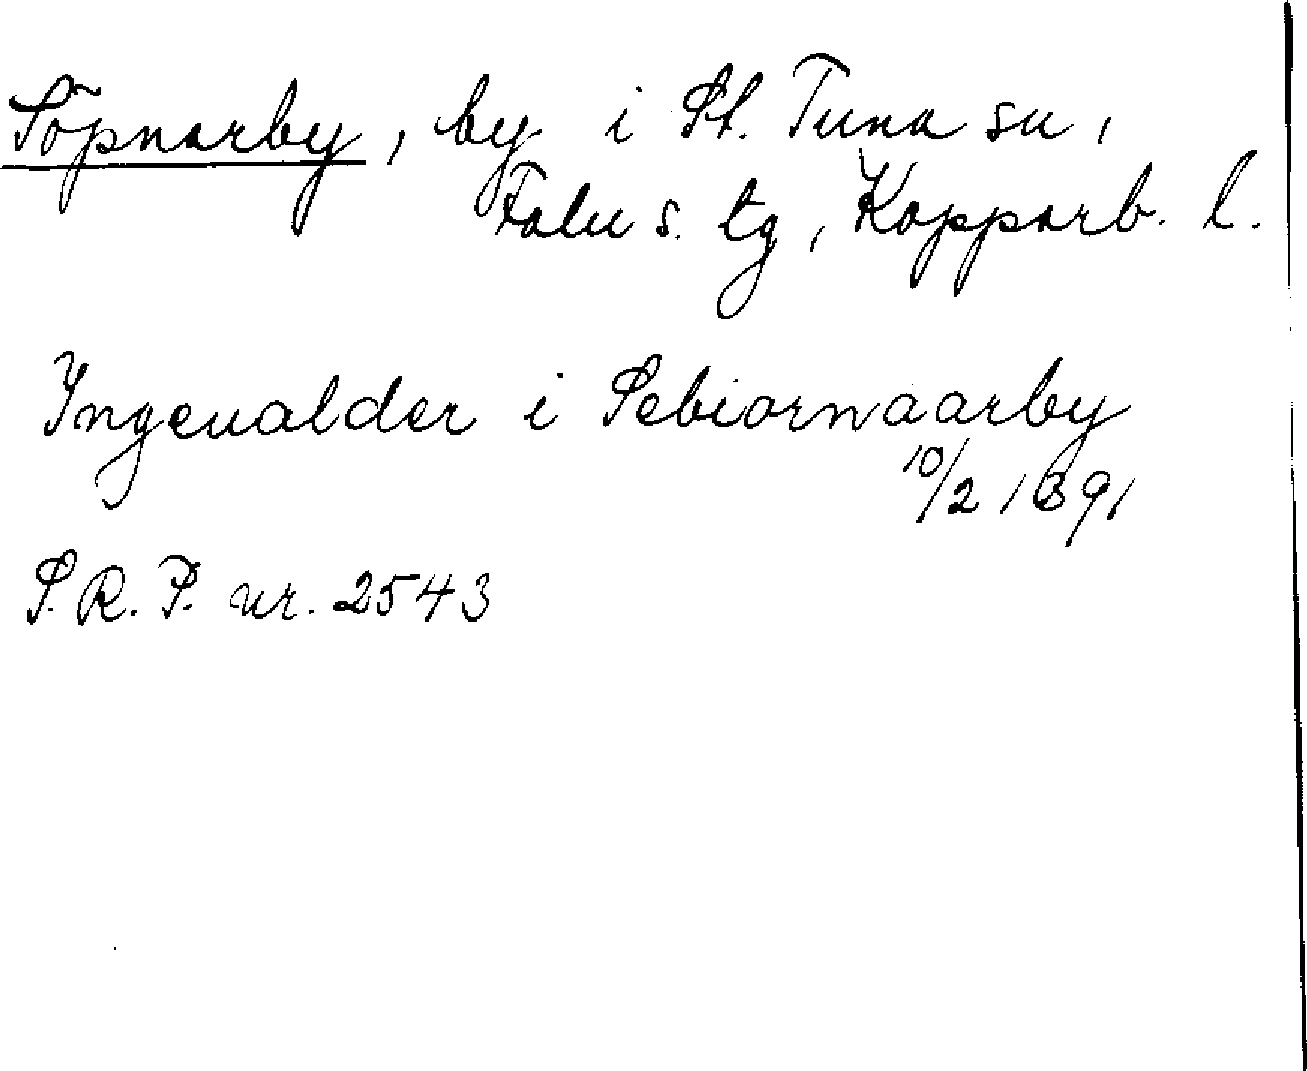 Söpnarby, by i St. Tuna sn,
Falu s. tg, Kopparb. l.
Ingeualder i Sebiornaarby
10/2 1391
S.R.P. nr. 2543